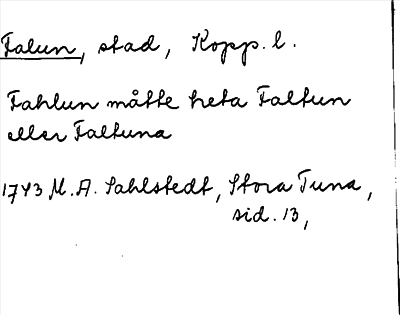 Falun, stad, Kopp. l.
Fahlun måtte heta Faltun
eller Faltuna
1743 M. A. Sahlstedt, Stora Tuna,
sid. 13,